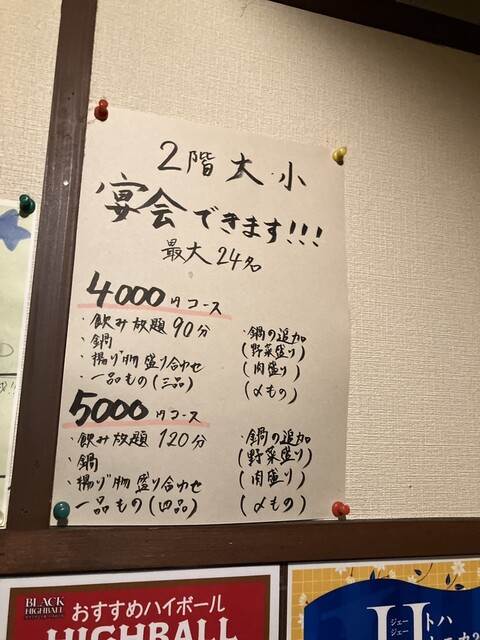 2階大・小
宴会できます!!!
最大24名
4000円コース
・飲み放題90分
・鍋
・揚げ物盛り合わせ
・一品もの(三品)
・鍋の追加
(野菜盛り)
(肉盛り)
(〆もの)
5000円コース
・飲み放題120分
・鍋
・揚げ物盛り合わせ
一品もの(四品)
・鍋の追加
(野菜盛り)
(肉盛り)
(〆もの)
BLACK
HIGHBALL
おすすめハイボール
HIGHBALL
ジェー
ジェー
トハ